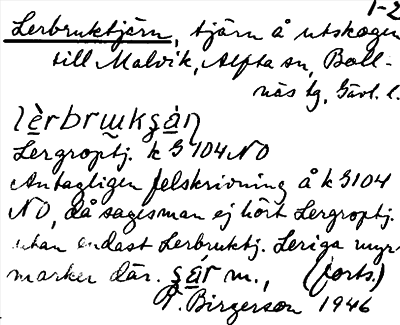 1-2
Lerbruktjärn, tjärn å utskogen
till Malvik, Alfta sn, Boll-
näs tg, Gävl. l.
lèrbrɯksáṇ
Lergroptj. k G 104 NO
Antagligen felskrivning å k G 104
NO, då sagesman ej hört Lergroptj.
utan endast Lerbruktj. Leriga myr-
marker där. m., (forts.)
P. Birgerson 1946